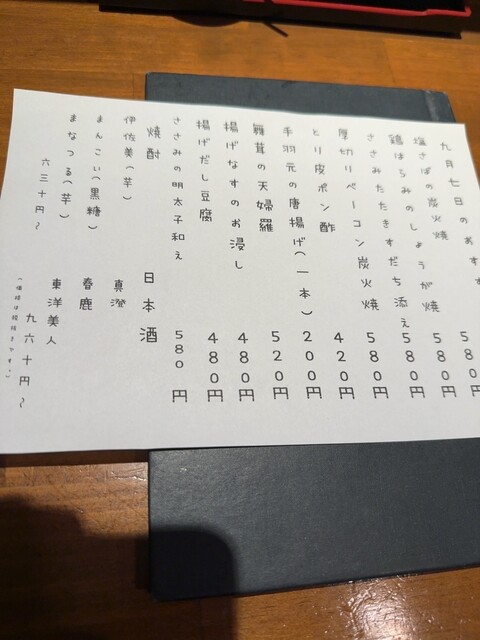 九月七日のおすす
塩さばの炭火焼 580円
鶏はらみのしょうが焼 580円
ささみたたきすだち添え 580円
厚切りベーコン炭火焼 580円
とり皮ポン酢 420円
手羽元の唐揚げ(一本) 200円
舞茸の天婦羅 520円
揚げなすのお浸し 480円
揚げだし豆腐 480円
ささみの明太子和え 580円
焼酎
伊佐美(芋)
まんこい(黒糖)
まなつる(芋)
六三十円〜
日本酒
真澄
春鹿
東洋美人
九六十円〜